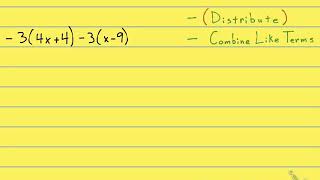 - (Distribute)
- 3(4x+4) - 3(x-9)
- Combine Like Terms